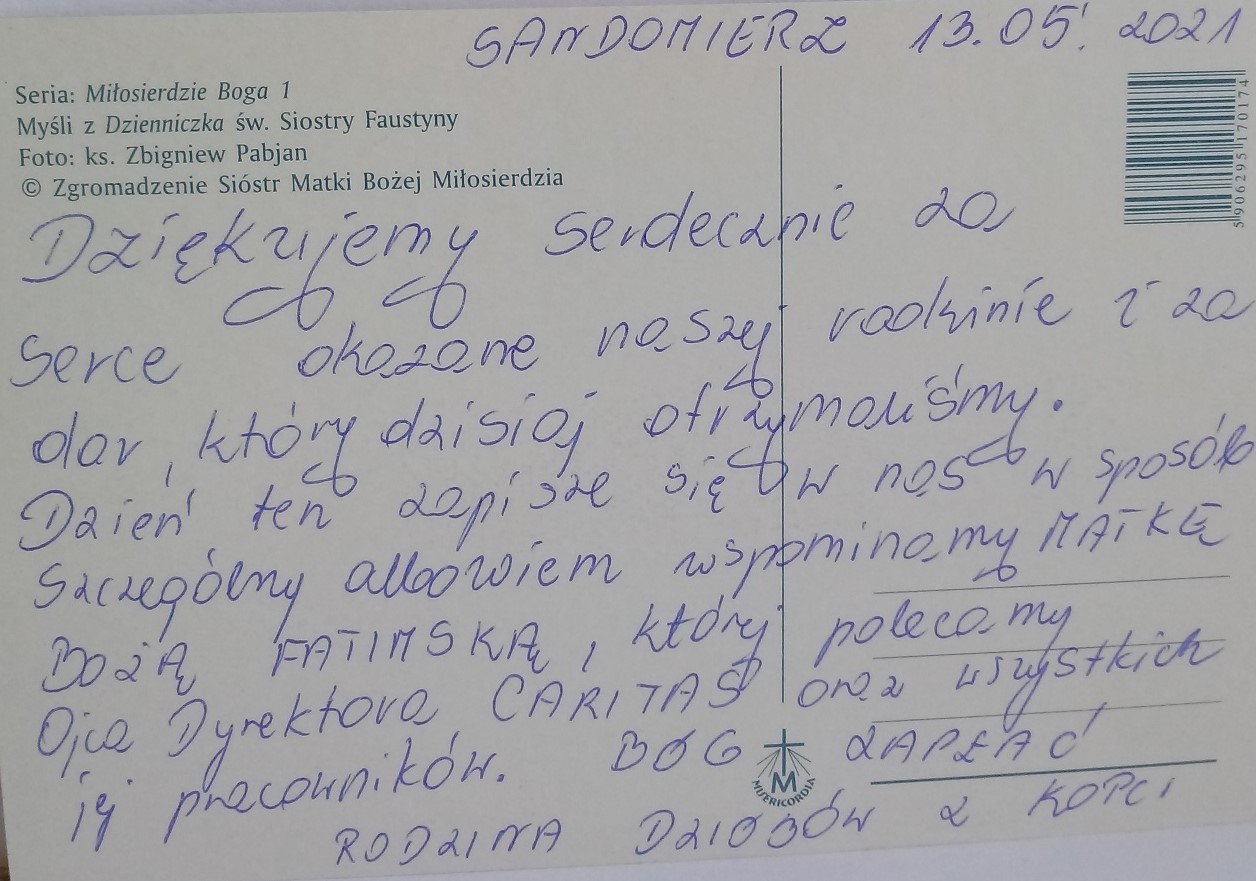 SANDOMIERZ 13.05. 2021
Seria: Miłosierdzie Boga 1
Myśli z Dzienniczka św. Siostry Faustyny
Foto: ks. Zbigniew Pabjan
© Zgromadzenie Sióstr Matki Bożej Miłosierdzia
5906295170174
Dziękujemy serdecznie za
serce okazane naszej rodzinie i za
dar, który dzisiaj otrzymaliśmy.
Dzień ten zapisze się w nas w sposób
szczególny albowiem wspominamy MATKĘ
BOŻĄ FATIMSKĄ, której polecamy
Ojca Dyrektora CARITAS oraz wszystkich
jej pracowników. BÓG ZAPŁAĆ
MISERICORDIA
RODZINA DZIOBÓW z KOPCI